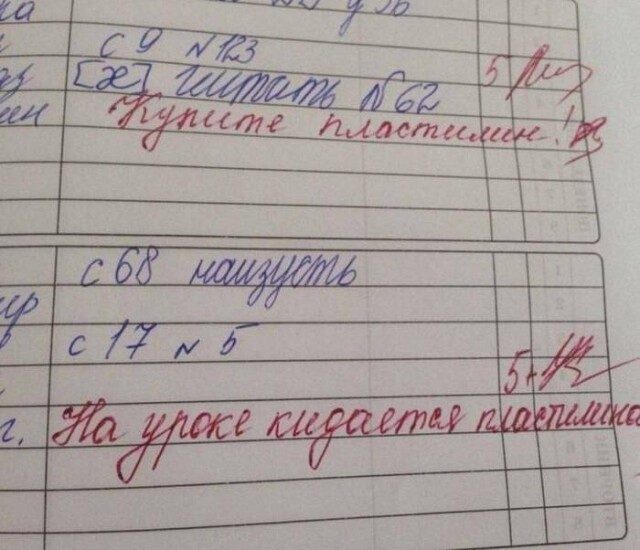 с 9 N 123
5
[х] читать N 62
Купите пластилин!
с 68 наизусть
с 17 N 5
5+
г. На уроке кидается пластилино